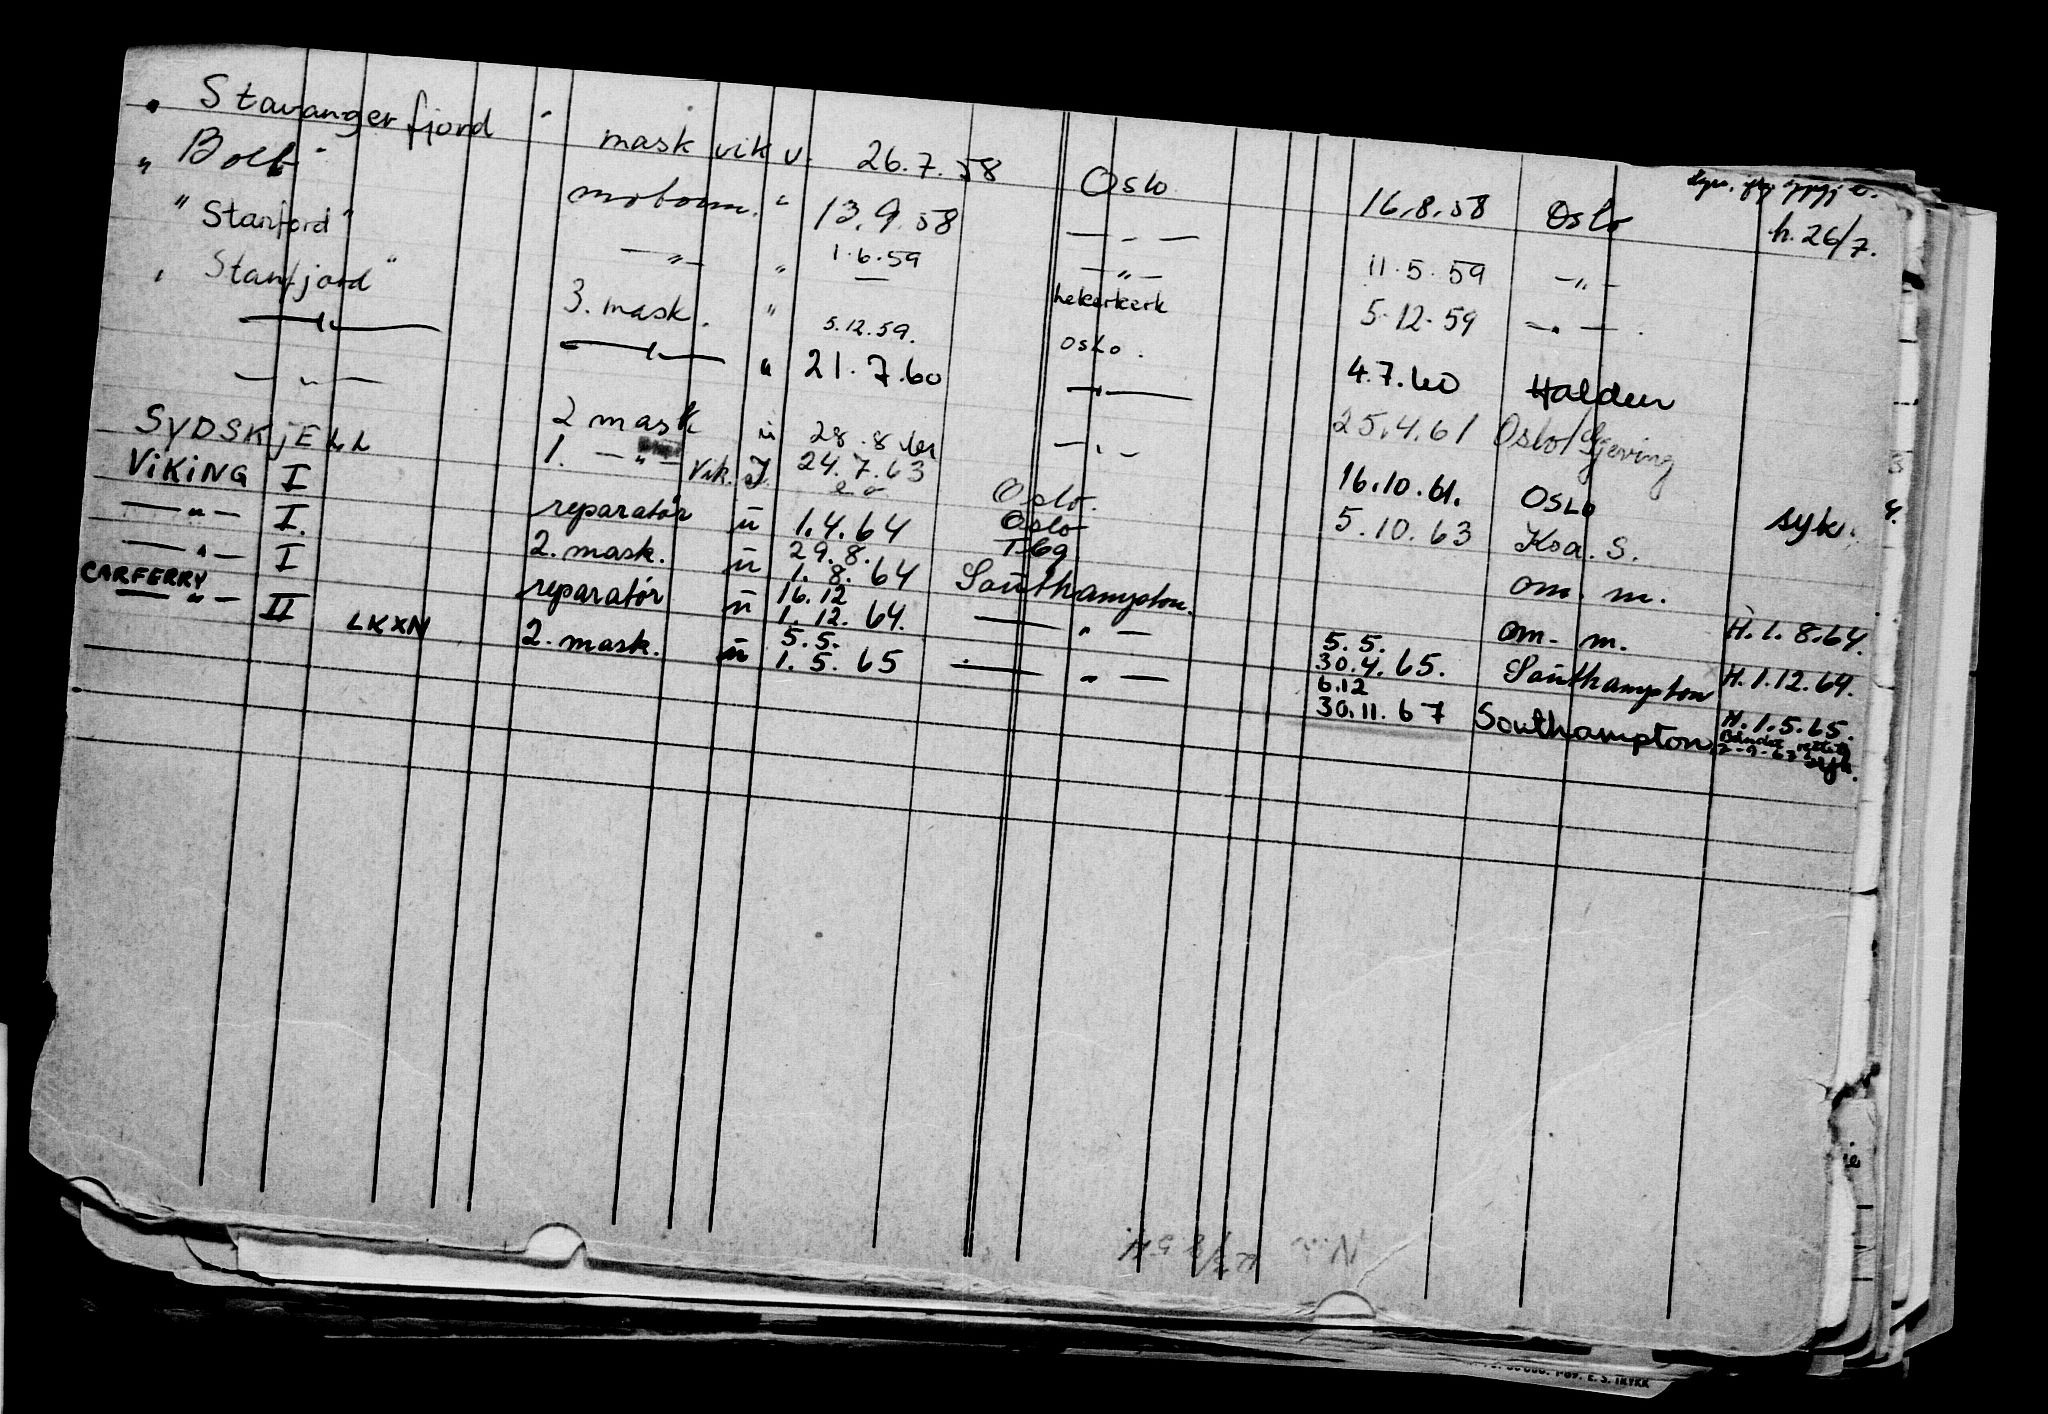 " Stavangerfjord " mask vik u. 26.7.58 Oslo 16.8.58 Oslo h. 26/7.
" Bolt " motorm. " 13.9.58 — " — 11.5.59 — " —
" Stanford " — " — " 1.6.59 — " — 5.12.59 — " —
" Stanfjord " 3. mask. " 5.12.59. Lekerkerk 4.7.60 Halden
— " — — " — " 21.7.60 Oslo. 25.4.61 Oslo/Gjeving
— " — 2 mask u 28.8.61 — " — 16.10.61. OSLO syk.
SYDSKJELL 1. — " — Vik. J. 24.7.63 — " — 5.10.63 Kra. S.
VIKING I reparatør u 1.4.64 Oslo om. m.
— " — I. 2. mask. u 29.8. 1.8.64 Tbg om. m. H. 1.8.64.
— " — I reparatør u 16.12 1.12.64. Southampton. 5.5. 30.4.65. Southampton H. 1.12.64.
CARFERRY — " — II LKXN 2. mask. u 5.5. 1.5.65 — " — 6.12 30.11.67 Southampton H. 1.5.65.
syk.